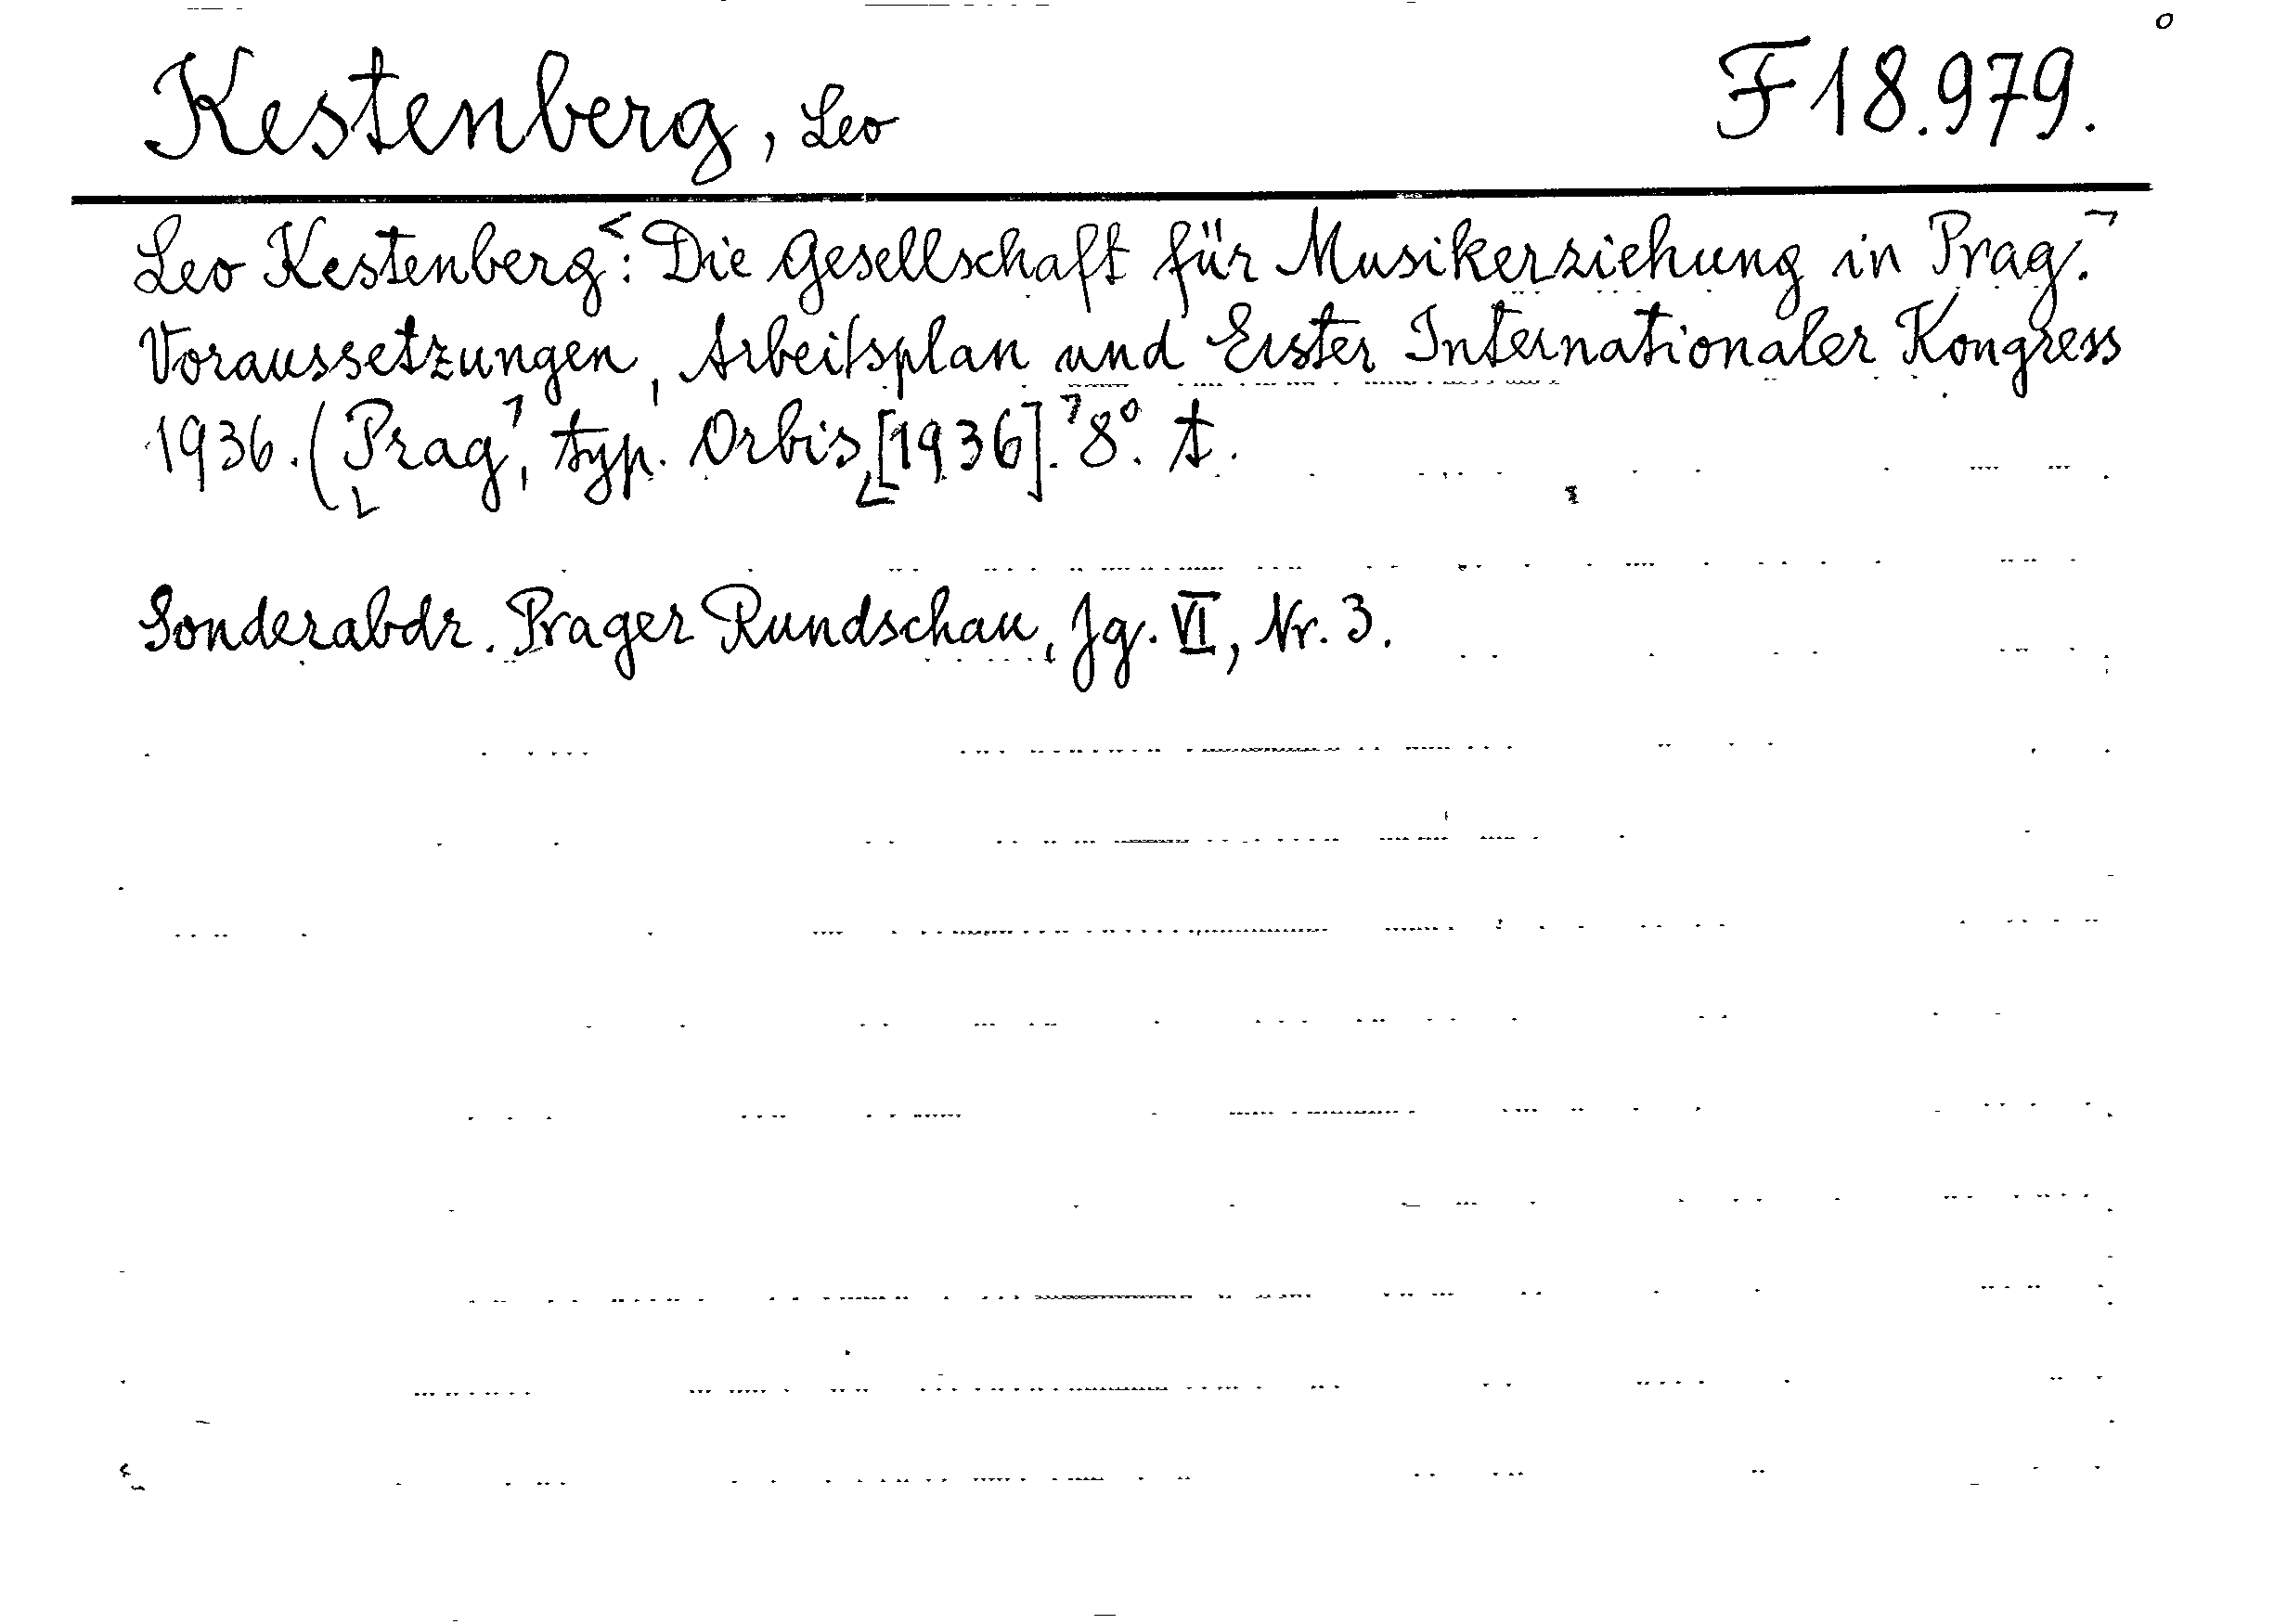 Kestenberg, Leo F 18.979.
Leo Kestenberg: Die Gesellschaft für Musikerziehung in Prag.
Voraussetzungen, Arbeitsplan und Erster Internationaler Kongress
1936. (Prag, typ. Orbis, [1936]. 8°. t.
Sonderabdr. Prager Rundschau, Jg. VI, Nr. 3.